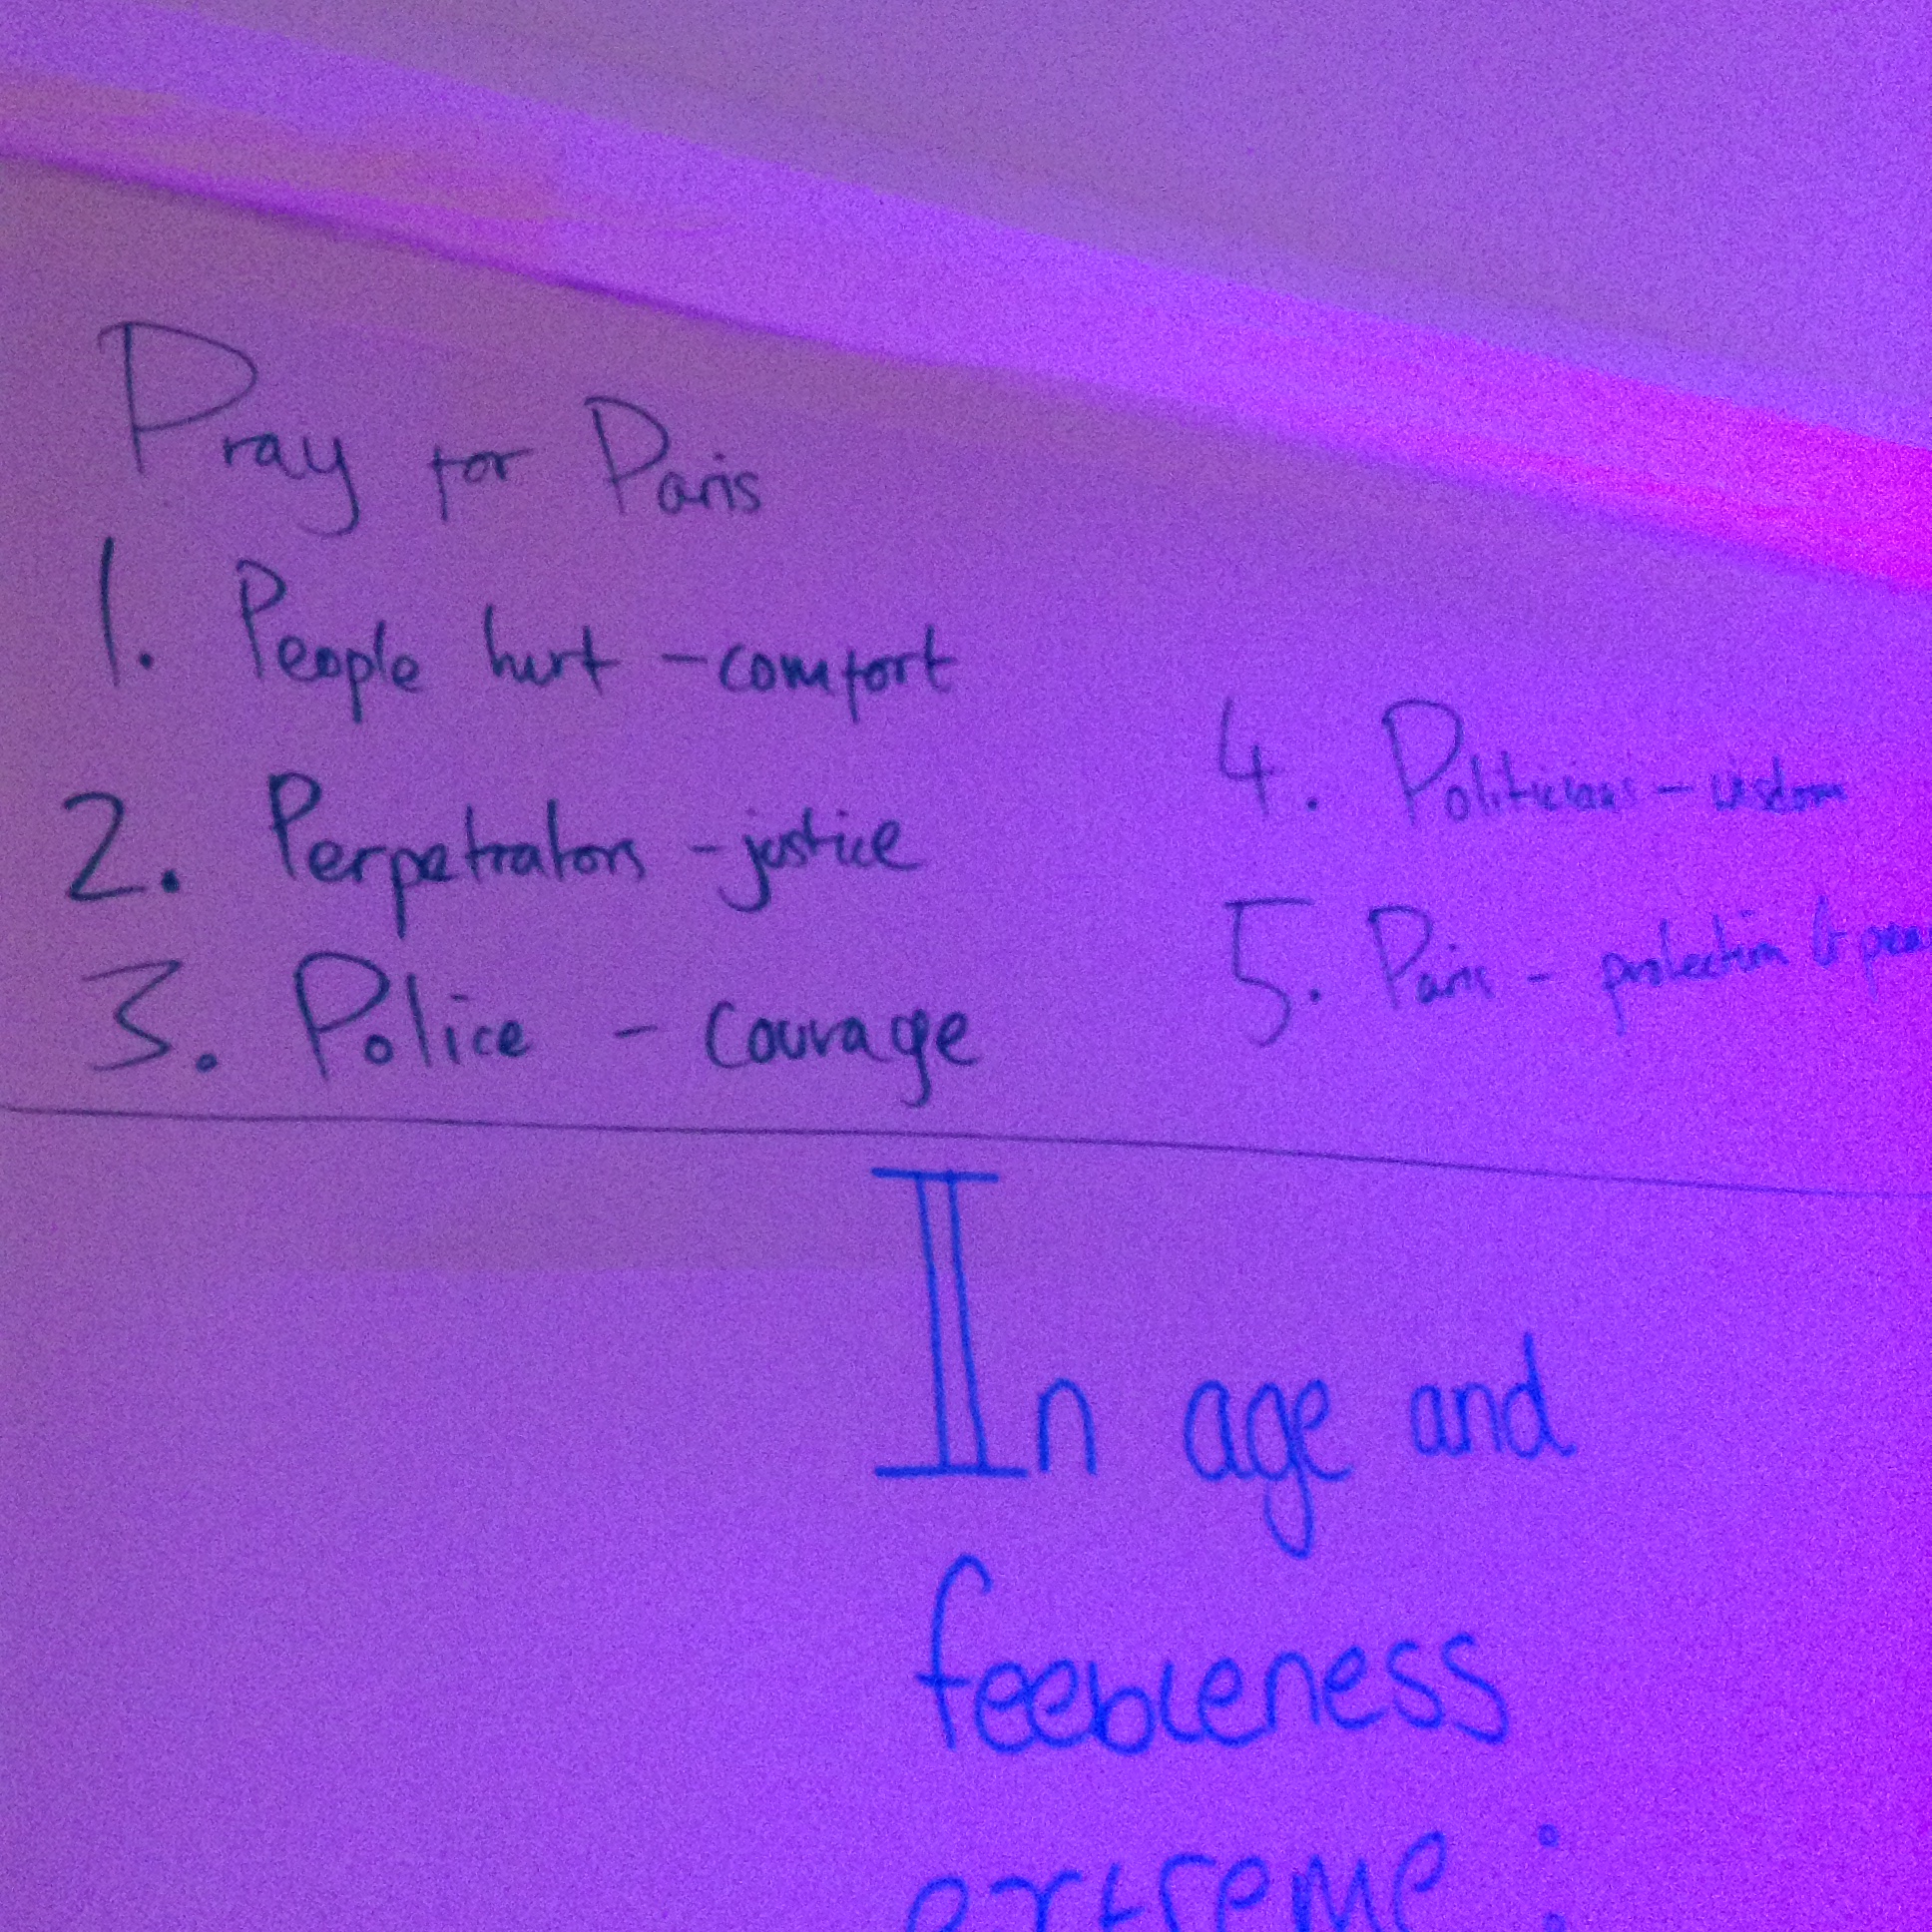 Pray for Paris
1. People hurt - comfort
2. Perpetrators - justice
3. Police - courage
4. Politicians - wisdom
5. Paris - protection &
In age and
feebleness
extreme :